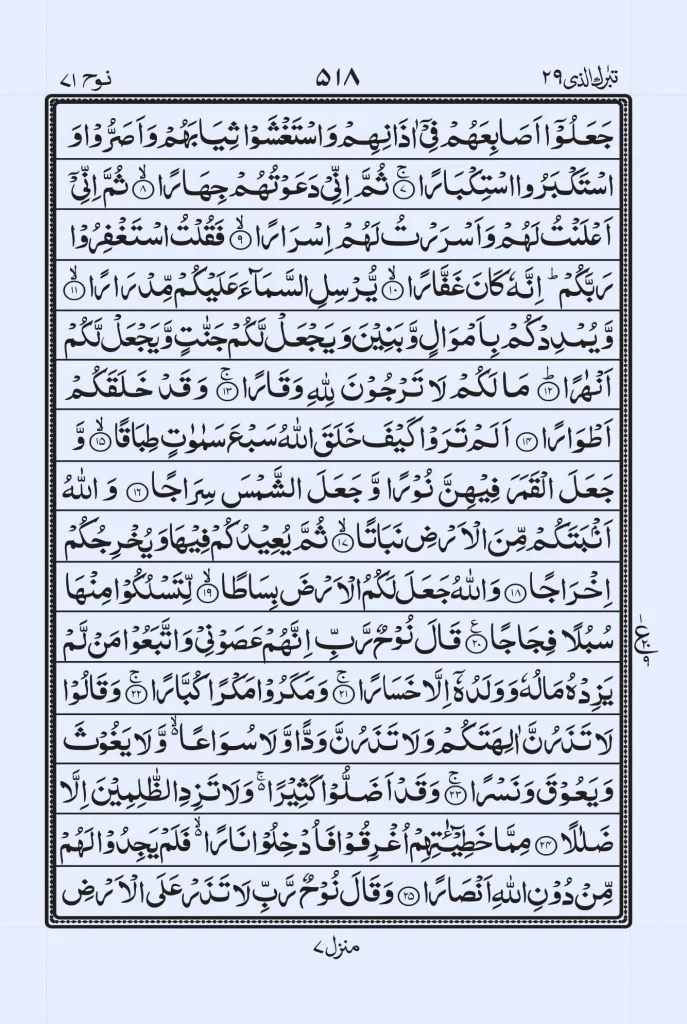 تبٰرك الذی ٢٩ ٥١٨ نوح ٧١
جَعَلُوْۤا اَصَابِعَهُمْ فِیْۤ اٰذَانِهِمْ وَاسْتَغْشَوْا ثِیَابَهُمْ وَاَصَرُّوْا وَ
اسْتَكْبَرُوا اسْتِكْبَارًا ۚ﴿٧﴾ ثُمَّ اِنِّیْ دَعَوْتُهُمْ جِهَارًا ۙ﴿٨﴾ ثُمَّ اِنِّیْۤ
اَعْلَنْتُ لَهُمْ وَاَسْرَرْتُ لَهُمْ اِسْرَارًا ۙ﴿٩﴾ فَقُلْتُ اسْتَغْفِرُوْا
رَبَّكُمْ ؕ اِنَّهٗ كَانَ غَفَّارًا ۙ﴿١٠﴾ یُّرْسِلِ السَّمَآءَ عَلَیْكُمْ مِّدْرَارًا ۙ﴿١١﴾
وَّیُمْدِدْكُمْ بِاَمْوَالٍ وَّبَنِیْنَ وَیَجْعَلْ لَّكُمْ جَنّٰتٍ وَّیَجْعَلْ لَّكُمْ
اَنْهٰرًا ؕ﴿١٢﴾ مَا لَكُمْ لَا تَرْجُوْنَ لِلّٰهِ وَقَارًا ۚ﴿١٣﴾ وَقَدْ خَلَقَكُمْ
اَطْوَارًا ﴿١٤﴾ اَلَمْ تَرَوْا كَیْفَ خَلَقَ اللّٰهُ سَبْعَ سَمٰوٰتٍ طِبَاقًا ۙ﴿١٥﴾ وَّ
جَعَلَ الْقَمَرَ فِیْهِنَّ نُوْرًا وَّجَعَلَ الشَّمْسَ سِرَاجًا ﴿١٦﴾ وَاللّٰهُ
اَنْۢبَتَكُمْ مِّنَ الْاَرْضِ نَبَاتًا ۙ﴿١٧﴾ ثُمَّ یُعِیْدُكُمْ فِیْهَا وَیُخْرِجُكُمْ
اِخْرَاجًا ﴿١٨﴾ وَاللّٰهُ جَعَلَ لَكُمُ الْاَرْضَ بِسَاطًا ۙ﴿١٩﴾ لِّتَسْلُكُوْا مِنْهَا
سُبُلًا فِجَاجًا ﴿٢٠﴾ قَالَ نُوْحٌ رَّبِّ اِنَّهُمْ عَصَوْنِیْ وَاتَّبَعُوْا مَنْ لَّمْ
یَزِدْهُ مَالُهٗ وَوَلَدُهٗۤ اِلَّا خَسَارًا ۚ﴿٢١﴾ وَمَكَرُوْا مَكْرًا كُبَّارًا ۚ﴿٢٢﴾ وَقَالُوْا
لَا تَذَرُنَّ اٰلِهَتَكُمْ وَلَا تَذَرُنَّ وَدًّا وَّلَا سُوَاعًا ۙ۬ وَّلَا یَغُوْثَ
وَیَعُوْقَ وَنَسْرًا ۚ﴿٢٣﴾ وَقَدْ اَضَلُّوْا كَثِیْرًا ۚ۬ وَلَا تَزِدِ الظّٰلِمِیْنَ اِلَّا
ضَلٰلًا ﴿٢٤﴾ مِمَّا خَطِیْٓـٰٔتِهِمْ اُغْرِقُوْا فَاُدْخِلُوْا نَارًا ۙ۬ فَلَمْ یَجِدُوْا لَهُمْ
مِّنْ دُوْنِ اللّٰهِ اَنْصَارًا ﴿٢٥﴾ وَقَالَ نُوْحٌ رَّبِّ لَا تَذَرْ عَلَی الْاَرْضِ
منزل ٧